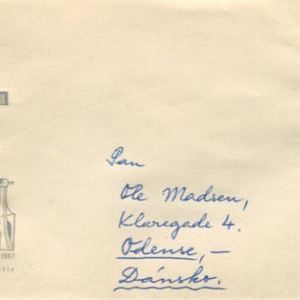 Pan
Ole Madsen,
Klaregade 4.
Odense,—
Dánsko.
1961